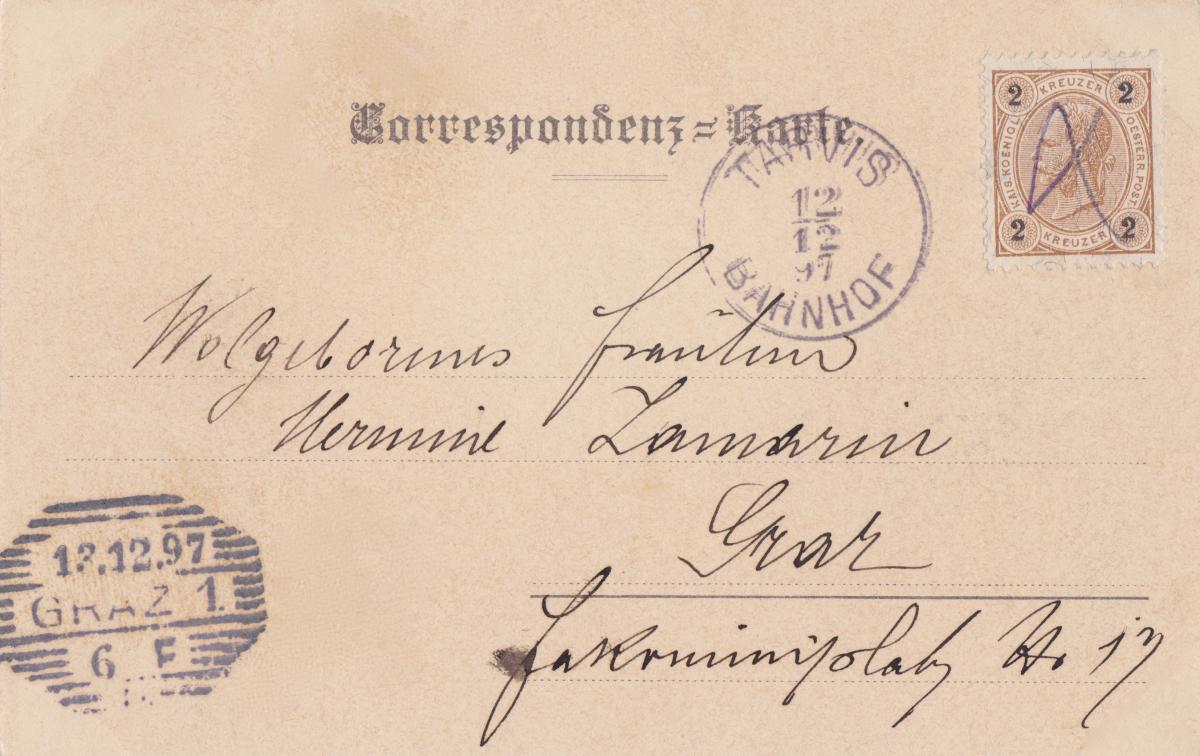 Correspondenz=Karte
2 KREUZER 2
KAIS. KOENIGL. OESTERR. POST.
2 KREUZER 2
TARVIS
12
12
97
BAHNHOF
Wolgeborenes Fräulein
Hermine Zamarin
Graz
Jakominiplatz No 17
13.12.97
GRAZ 1.
6 F